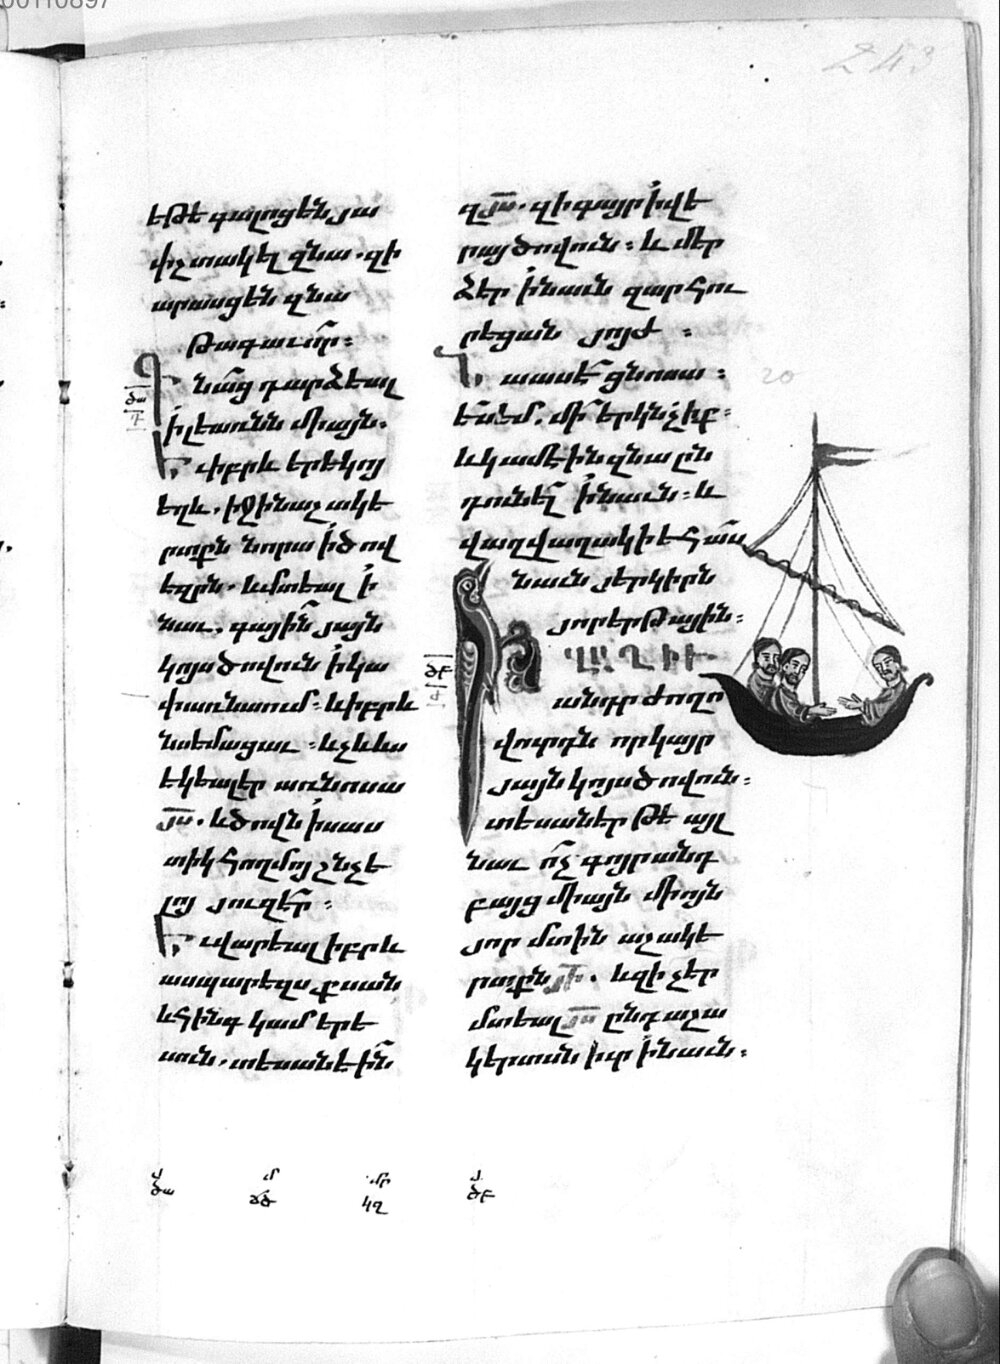 243
եթե գալոցեն յա
փշտակել զնա. զի
արասցեն զնա
թագաւոր։
Գնաց դարձեալ
ի լեառնն միայն.
Եւ իբրև երեկոյ
եղև. իջին աշակե
րտքն նորա ի ծով
եզրն. և մտեալ ի
նաւ. գային յայն
կոյս ծովուն ի կա
փառնաում։ և իբրև
նսեմացաւ։ և չևևս
եկեալ էր առ նոսա
յս. և ծովն ի սաս
տիկ հողմոյ շնչե
լոյ յուզէր։
Եւ վարեալ իբրև
ասպարեզս քսան
և հինգ կամ երե
սուն. տեսանեին
զյս. զի գայր ի վե
րայ ծովուն։ և մեր
ձեր ի նաւն զարհու
րեցան յոյժ։
Եւ ասէ ցնոսա։
ես եմ. մի երկնչիք։
և կամեին զնա ըն
դունել ի նաւն։ և
վաղվաղակի եհաս
նաւն յերկիրն
յոր երթային։
ՎԱՂԻՒ
անդր ժողո
վուրդն որ կայր
յայն կոյս ծովուն։
տեսաներ թե այլ
նաւ ոչ գոյր անդ
բայց միայն մի ոյն
յոր մտին աշակե
րտքն յի. և զի չեր
մտեալ յս ընդ աշա
կերտսն իւր ի նաւն։
20